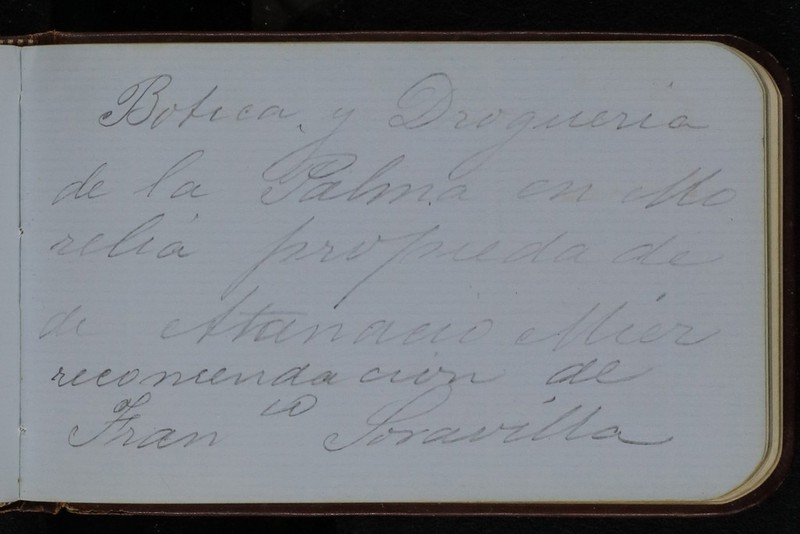 Botica y Drogueria
de la Palma en Mo
relia propiedade
de Atanacio Mier
recomendacion de
Fran co Soravilla